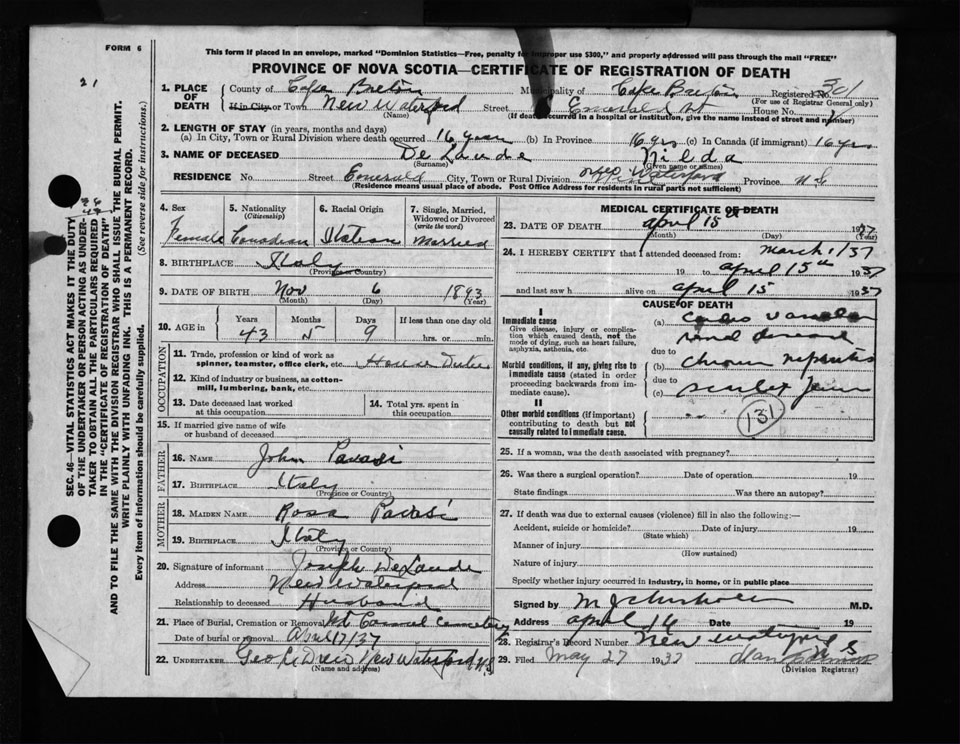 FORM 6
21
This form if placed in an envelope, marked "Dominion Statistics—Free, penalty for improper use $300," and properly addressed will pass through the mail "FREE"
PROVINCE OF NOVA SCOTIA—CERTIFICATE OF REGISTRATION OF DEATH
1. PLACE OF DEATH County of Cape Breton Municipality of Cape Breton Registered No. 301
(For use of Registrar General only)
If in City or Town New Waterford Street Emerald St House No.
(Name) (If death occurred in a hospital or institution, give the name instead of street and number)
2. LENGTH OF STAY (in years, months and days)
(a) In City, Town or Rural Division where death occurred 16 years (b) In Province 16 yrs (c) In Canada (if immigrant) 16 yrs
3. NAME OF DECEASED De Laude Nilda
(Surname) (Given name or names)
RESIDENCE No. Street Emerald City, Town or Rural Division New Waterford Province N S
(Residence means usual place of abode. Post Office Address for residents in rural parts not sufficient)
SEC. 46—VITAL STATISTICS ACT MAKES IT THE DUTY
OF THE UNDERTAKER OR PERSON ACTING AS UNDER-
TAKER TO OBTAIN ALL THE PARTICULARS REQUIRED
IN THE "CERTIFICATE OF REGISTRATION OF DEATH"
AND TO FILE THE SAME WITH THE DIVISION REGISTRAR WHO SHALL ISSUE THE BURIAL PERMIT.
WRITE PLAINLY WITH UNFADING INK. THIS IS A PERMANENT RECORD.
Every item of information should be carefully supplied. (See reverse side for instructions.)
4. Sex 5. Nationality (Citizenship) 6. Racial Origin 7. Single, Married, Widowed or Divorced (write the word)
Female Canadian Italian Married
8. BIRTHPLACE Italy
(Province or Country)
9. DATE OF BIRTH Nov 6 1893
(Month) (Day) (Year)
10. AGE in Years Months Days If less than one day old
43 5 9 hrs. or min.
OCCUPATION
11. Trade, profession or kind of work as spinner, teamster, office clerk, etc. House Duties
12. Kind of industry or business, as cotton-mill, lumbering, bank, etc.
13. Date deceased last worked at this occupation 14. Total yrs. spent in this occupation
15. If married give name of wife or husband of deceased
FATHER
16. NAME John Pavasi
17. BIRTHPLACE Italy
(Province or Country)
MOTHER
18. MAIDEN NAME Rosa Pavasi
19. BIRTHPLACE Italy
(Province or Country)
20. Signature of informant Joseph DeLaude
Address New Waterford
Relationship to deceased Husband
21. Place of Burial, Cremation or Removal Mt Carmel Cemetery
Date of burial or removal April 17/37
22. UNDERTAKER Geo C Drew New Waterford N.S
(Name and address)
MEDICAL CERTIFICATE OF DEATH
23. DATE OF DEATH April 15th 1937
(Month) (Day) (Year)
24. I HEREBY CERTIFY that I attended deceased from: March 1/37
19 to April 15th 1937
and last saw h alive on April 15 1937
CAUSE OF DEATH
I
Immediate cause
Give disease, injury or complication which caused death, not the mode of dying, such as heart failure, asphyxia, asthenia, etc.
(a) Cardio vascular
renal disease
Morbid conditions, if any, giving rise to immediate cause (stated in order proceeding backwards from immediate cause).
due to (b) chronic nephritis
due to (c) scarlet fever
II
Other morbid conditions (if important) contributing to death but not causally related to immediate cause.
131
25. If a woman, was the death associated with pregnancy?
26. Was there a surgical operation? Date of operation 19
State findings Was there an autopsy?
27. If death was due to external causes (violence) fill in also the following:—
Accident, suicide or homicide? Date of injury 19
(State which)
Manner of injury
(How sustained)
Nature of injury
Specify whether injury occurred in industry, in home, or in public place
Signed by M.D.
Address April 16 Date 19
28. Registrar's Record Number New Waterford N S
29. Filed May 27 1937
(Division Registrar)